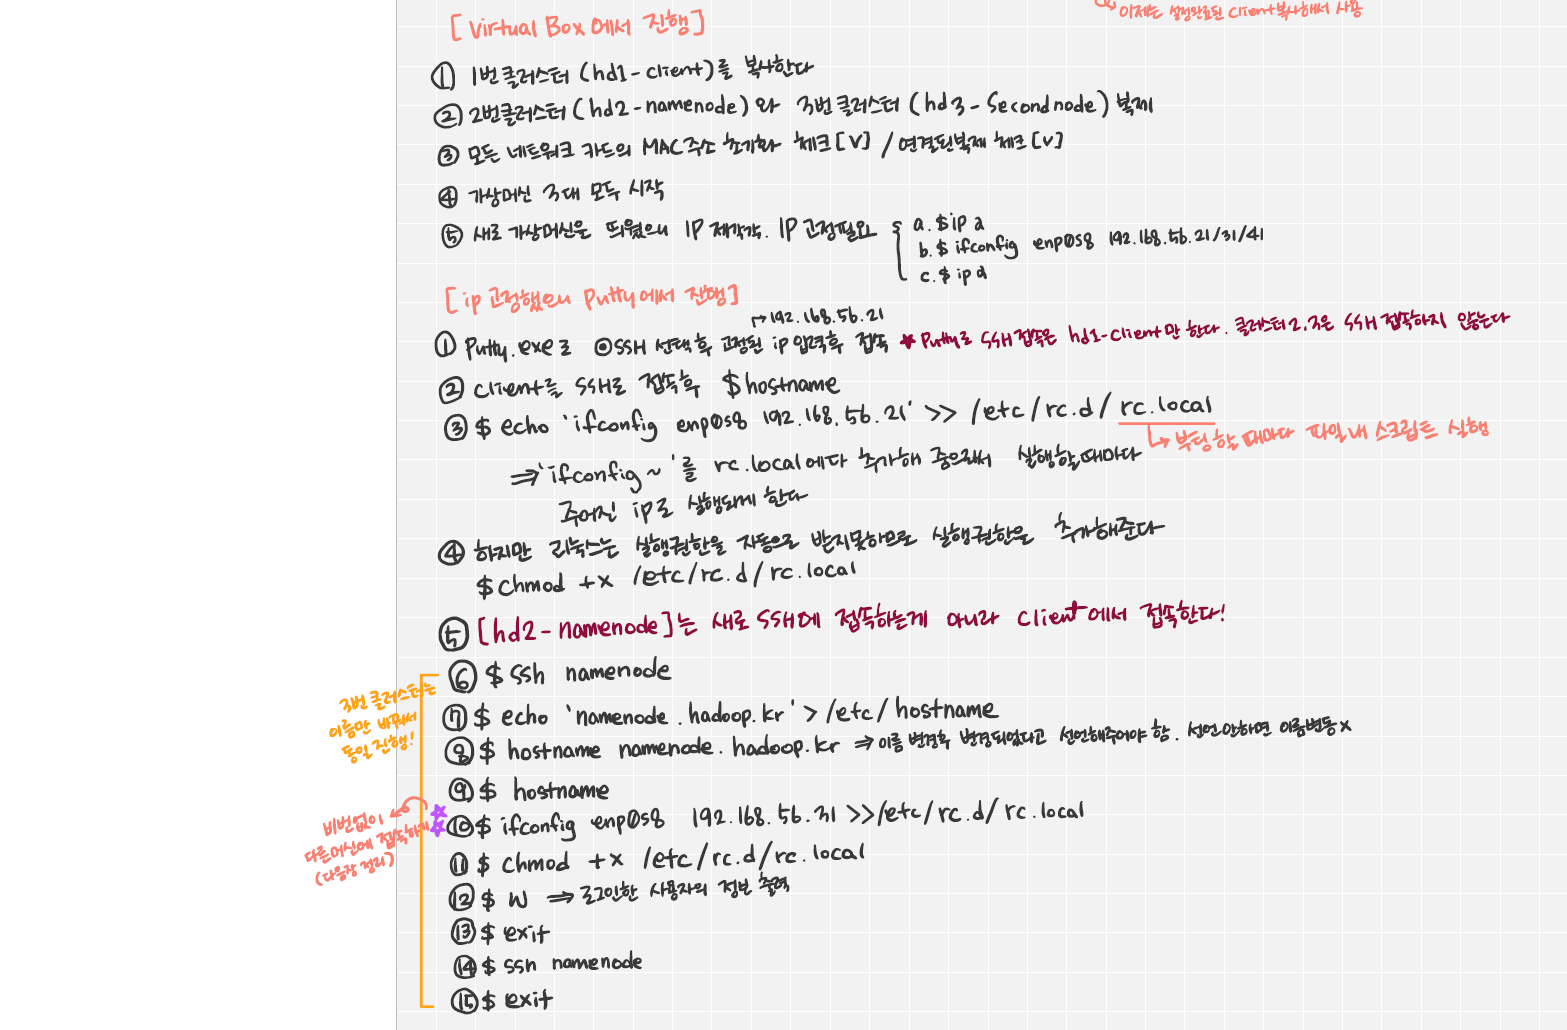 이제는 설정완료된 client 복사해서 사용
[Virtual Box에서 진행]
① 1번클러스터 (hd1-client)를 복사한다
② 2번클러스터 (hd2-namenode)와 3번클러스터 (hd3-Secondnode) 복제
③ 모든 네트워크 카드의 MAC주소 초기화 체크[V] / 연결된복제 체크[V]
④ 가상머신 3대 모두 시작
⑤ 새로 가상머신을 띄웠으니 IP 제각각. IP 고정필요
a. $ip a
b. $ ifconfig enp0s8 192.168.56.21/31/41
c. $ ip a
[ip 고정했으니 Putty에서 진행]
→192.168.56.21
① Putty.exe로 ◎SSH 선택후 고정된 ip입력후 접속 ★Putty로 SSH접속은 hd1-client만 한다. 클러스터2,3은 SSH 접속하지 않는다
② client를 SSH로 접속후 $hostname
③ $ echo 'ifconfig enp0s8 192.168.56.21' >> /etc/rc.d/rc.local
↳ 부팅할때마다 파일내 스크립트 실행
⇒'ifconfig~'를 rc.local에다 추가해 줌으로써 실행할때마다
주어진 ip로 실행되게 한다
④ 하지만 리눅스는 실행권한을 자동으로 받지못하므로 실행권한을 추가해준다
$chmod +x /etc/rc.d/rc.local
⑤ [hd2-namenode]는 새로 SSH에 접속하는게 아니라 client에서 접속한다!
⑥ $ ssh namenode
3번 클러스터는
이름만 바꿔서
동일 진행!
⑦ $ echo 'namenode.hadoop.kr' > /etc/hostname
⑧ $ hostname namenode.hadoop.kr ⇒ 이름 변경후 변경되었다고 선언해주어야 함. 선언안하면 이름변동x
⑨ $ hostname
⑩ $ ifconfig enp0s8 192.168.56.31 >>/etc/rc.d/rc.local
비번없이
다른머신에 접속하기
(다음장 정리)
⑪ $ chmod +x /etc/rc.d/rc.local
⑫ $ W ⇒ 로그인한 사용자의 정보 출력
⑬ $ exit
⑭ $ ssh namenode
⑮ $ exit